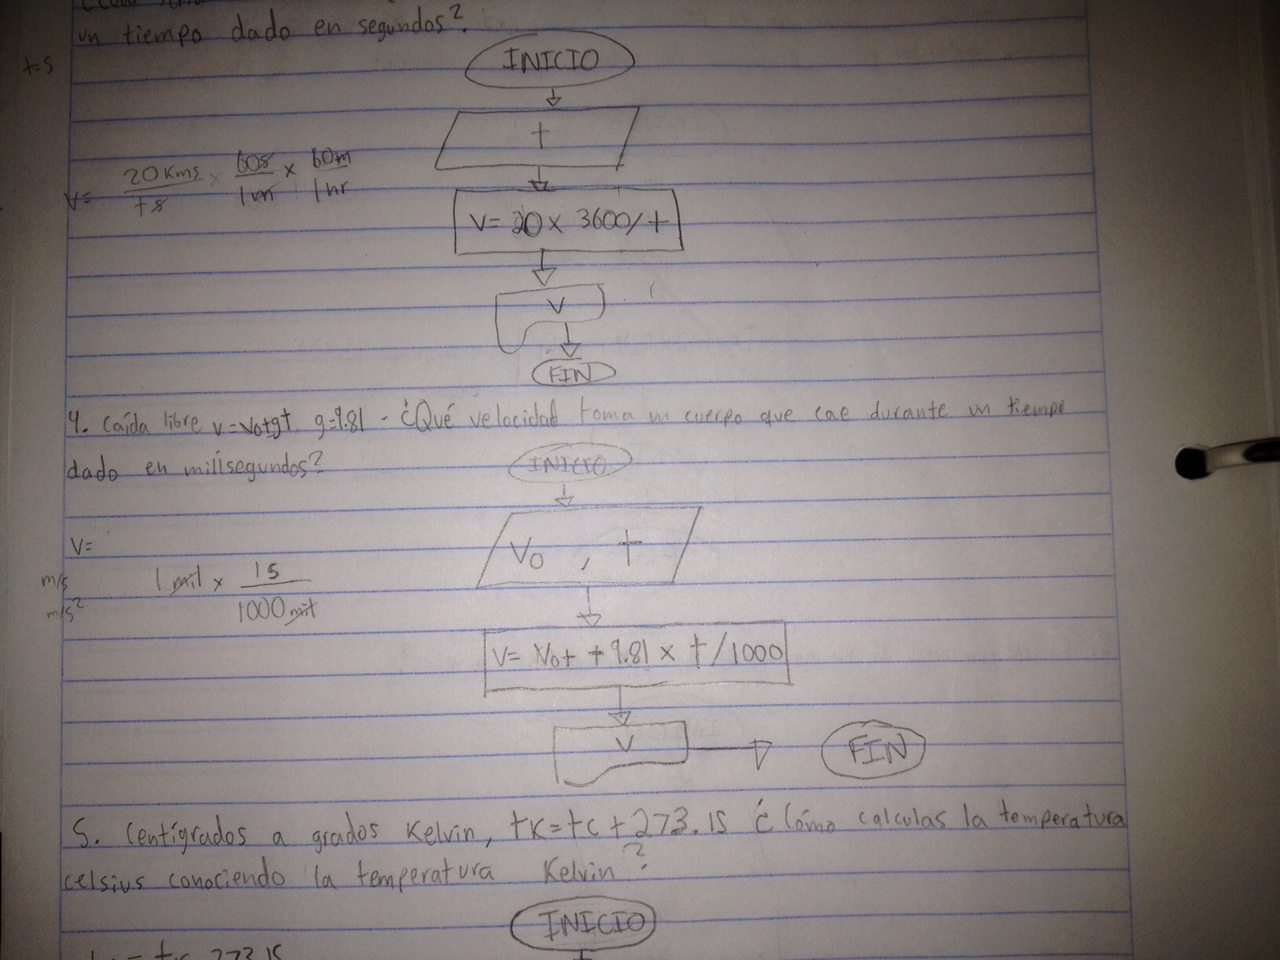 un tiempo dado en segundos?
t=s
INICIO
t
V= 20 Kms / t s × 60s / 1m × 60m / 1hr
V= 20 × 3600/t
V
FIN
4. Caída libre v=vo+gt, g=9.81 - ¿Qué velocidad toma un cuerpo que cae durante un tiempo
dado en milisegundos?
INICIO
Vo , t
V=
m/s
m/s²
1 mil × 1s / 1000 mil
V= Vot + 9.81 × t/1000
V
FIN
5. Centígrados a grados Kelvin, tK=tc+273.15 ¿Cómo calculas la temperatura
celsius conociendo la temperatura Kelvin?
INICIO
273.15